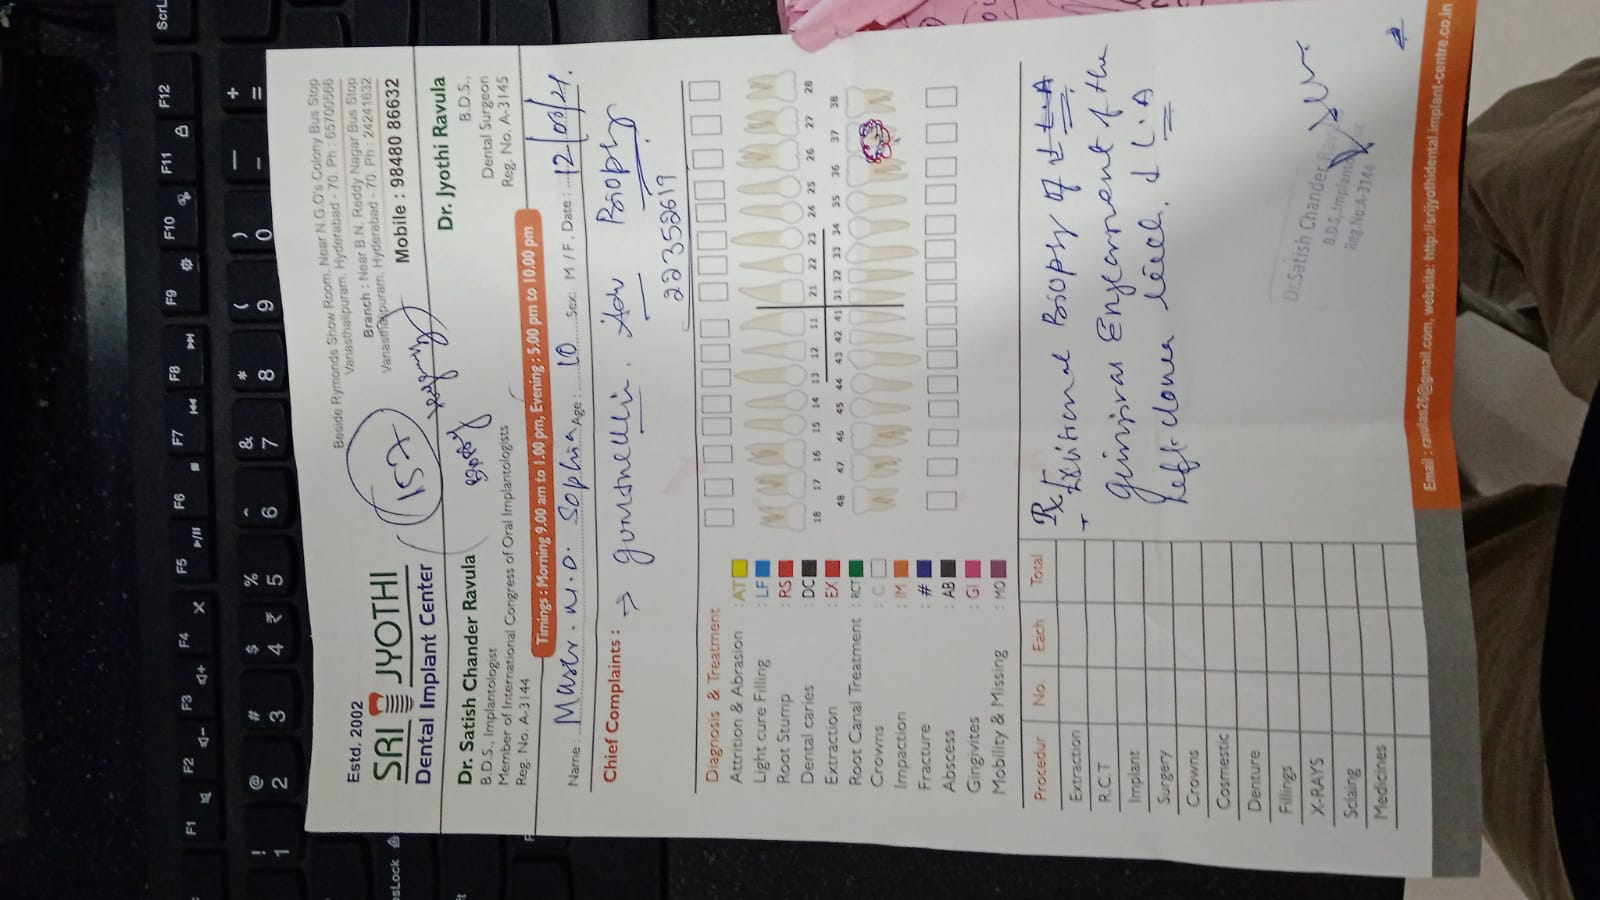 Estd. 2002
SRI JYOTHI
Dental Implant Center
Beside Rymonds Show Room, Near N.G.O's Colony Bus Stop
Vanasthalipuram, Hyderabad - 70. Ph : 65700566
Branch : Near B.N. Reddy Nagar Bus Stop
Vanasthalipuram, Hyderabad - 70. Ph : 24241632
Mobile : 98480 86632
157
Dr. Satish Chander Ravula
B.D.S., Implantologist
Member of International Congress of Oral Implantologists
Reg. No. A-3144
Dr. Jyothi Ravula
B.D.S.,
Dental Surgeon
Reg. No. A-3145
Timings : Morning 9.00 am to 1.00 pm, Evening : 5.00 pm to 10.00 pm
Name : Master . M . D . Sophia Age : 10 Sex: M / F, Date : 12
Chief Complaints :
Adv Biopsy
22352619
Diagnosis & Treatment
Attrition & Abrasion : AT
Light cure Filling : LF
Root Stump : RS
Dental caries : DC
Extraction : EX
Root Canal Treatment : RCT
Crowns : C
Impaction : IM
Fracture : #
Abscess : AB
Gingivites : GI
Mobility & Missing : MO
18 17 16 15 14 13 12 11 21 22 23 24 25 26 27 28
48 47 46 45 44 43 42 41 31 32 33 34 35 36 37 38
Procedur No. Each Total
Extraction
R.C.T
Implant
Surgery
Crowns
Cosmestic
Denture
Fillings
X-RAYS
Sclaing
Medicines
Rx
Biopsy of
the
Left
L.A
Dr.Satish Chander Ra
B.D.S.,Implant
Reg.No.A-3144
Email : ravulas26@gmail.com, website: http://srijyothidental.implant-centre.co.in
ScrL
F12
F11
F10
F9
F8
F7
F6
F5
F4
F3
F2
F1
+ =
_ -
) 0
( 9
* 8
& 7
^ 6
% 5
$ 4 ₹
# 3
@ 2
! 1
psLock